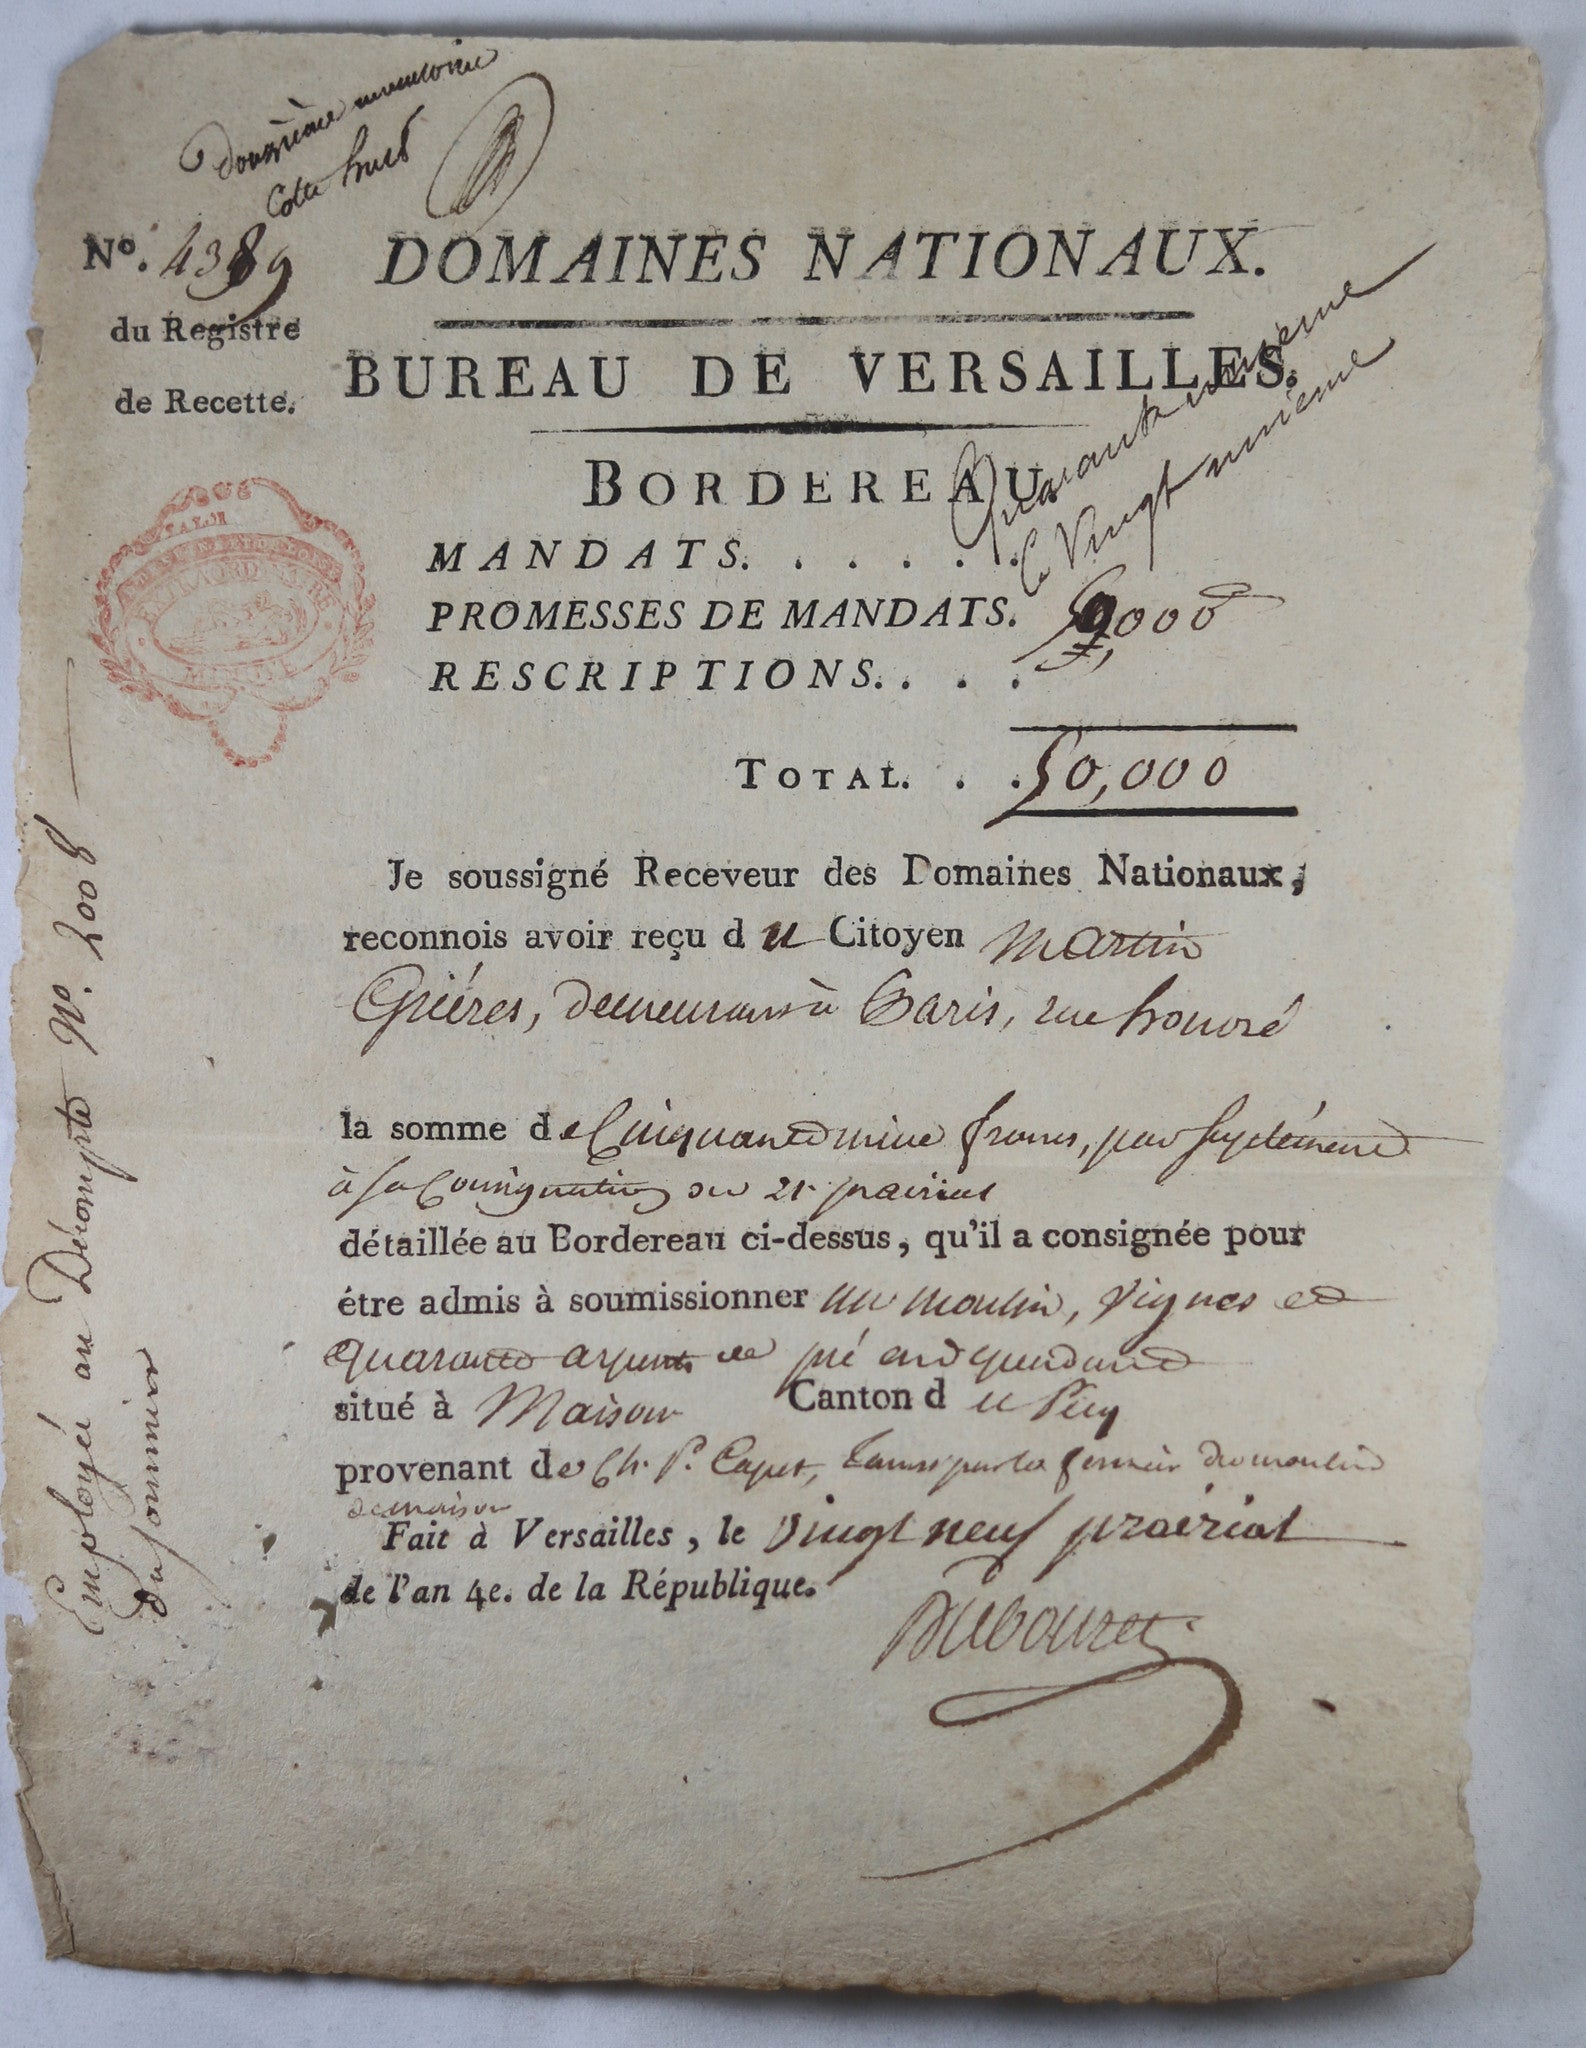 Douzième
Cotte huit
Nº. 4389
du Registre
de Recette.
DOMAINES NATIONAUX.
BUREAU DE VERSAILLES.
Quarante unième
Vingt unième
BORDEREAU
MANDATS. . . . . . .
PROMESSES DE MANDATS. 50,000
RESCRIPTIONS. . . .
TOTAL. . . 50,000
Je soussigné Receveur des Domaines Nationaux,
reconnois avoir reçu du Citoyen Martin
demeurant à Paris, rue honoré
la somme de Cinquante mille francs, par suplément
à sa Consignation du 21 prairial
détaillée au Bordereau ci-dessus, qu'il a consignée pour
être admis à soumissionner un moulin, vignes et
quarante arpents de pré en dépendant
situé à Maison Canton du Pecq
provenant de Ch. P. Capet, par le fermier du moulin
de maison
Fait à Versailles, le vingt neuf prairial
de l'an 4e. de la République.
Dubouzet
Employée au Décompte Nº. 2008
du